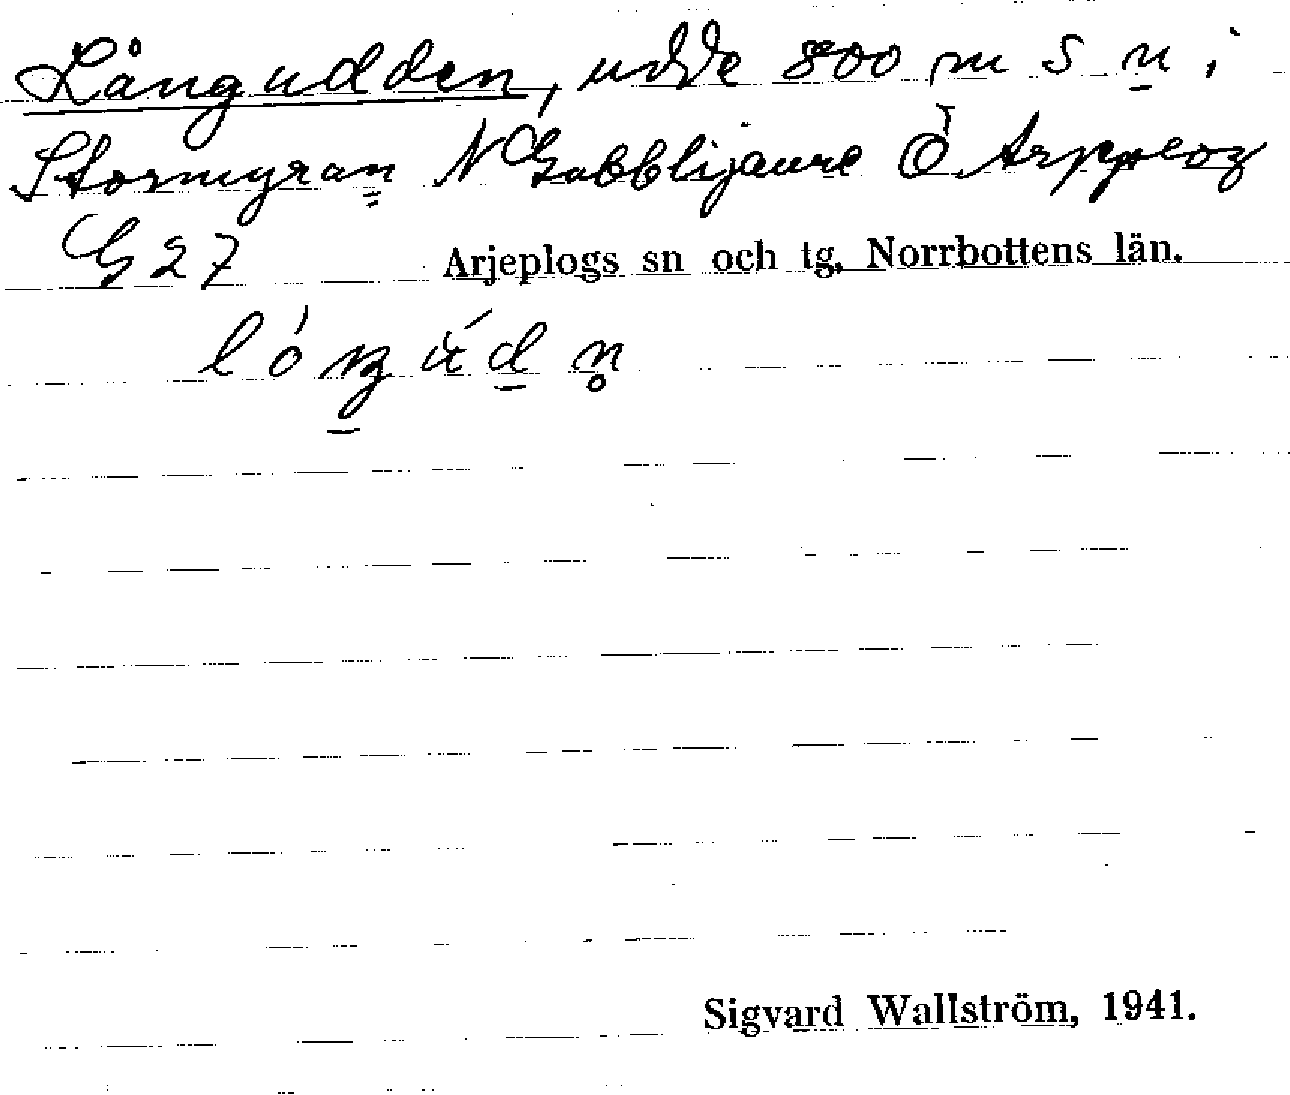 Långudden, udde 800 m S n i
Stormyran N Gabblijaure Ö Arpplog
G 27 Arjeplogs sn och tg. Norrbottens län.
Sigvard Wallström, 1941.